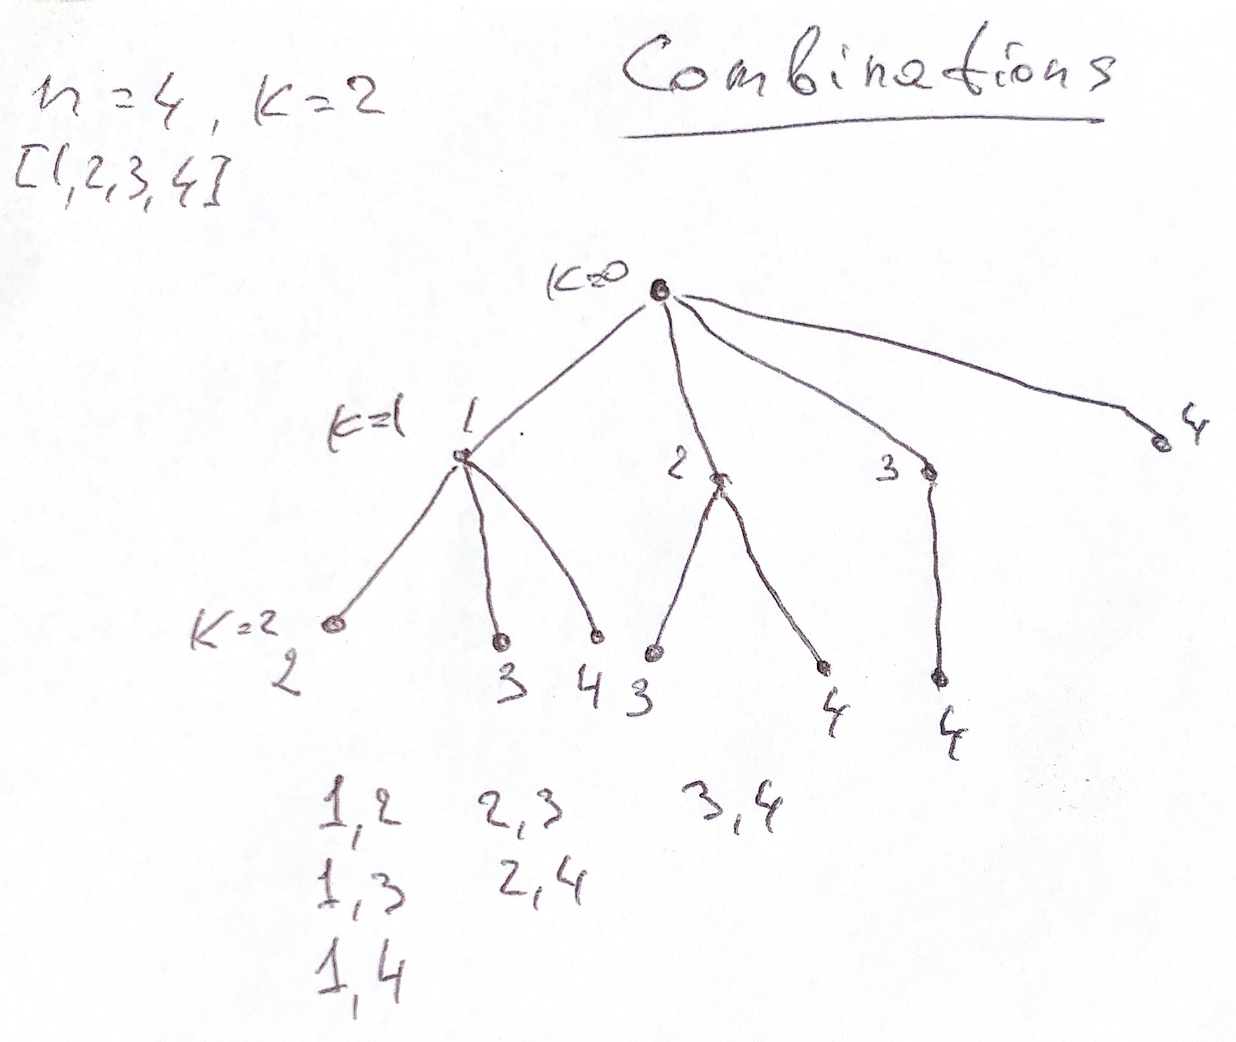 Combinations
n=4, K=2
[1,2,3,4]
K=0
K=1 1
2 3 4
K=2
2 3 4 3 4 4
1,2 2,3 3,4
1,3 2,4
1,4